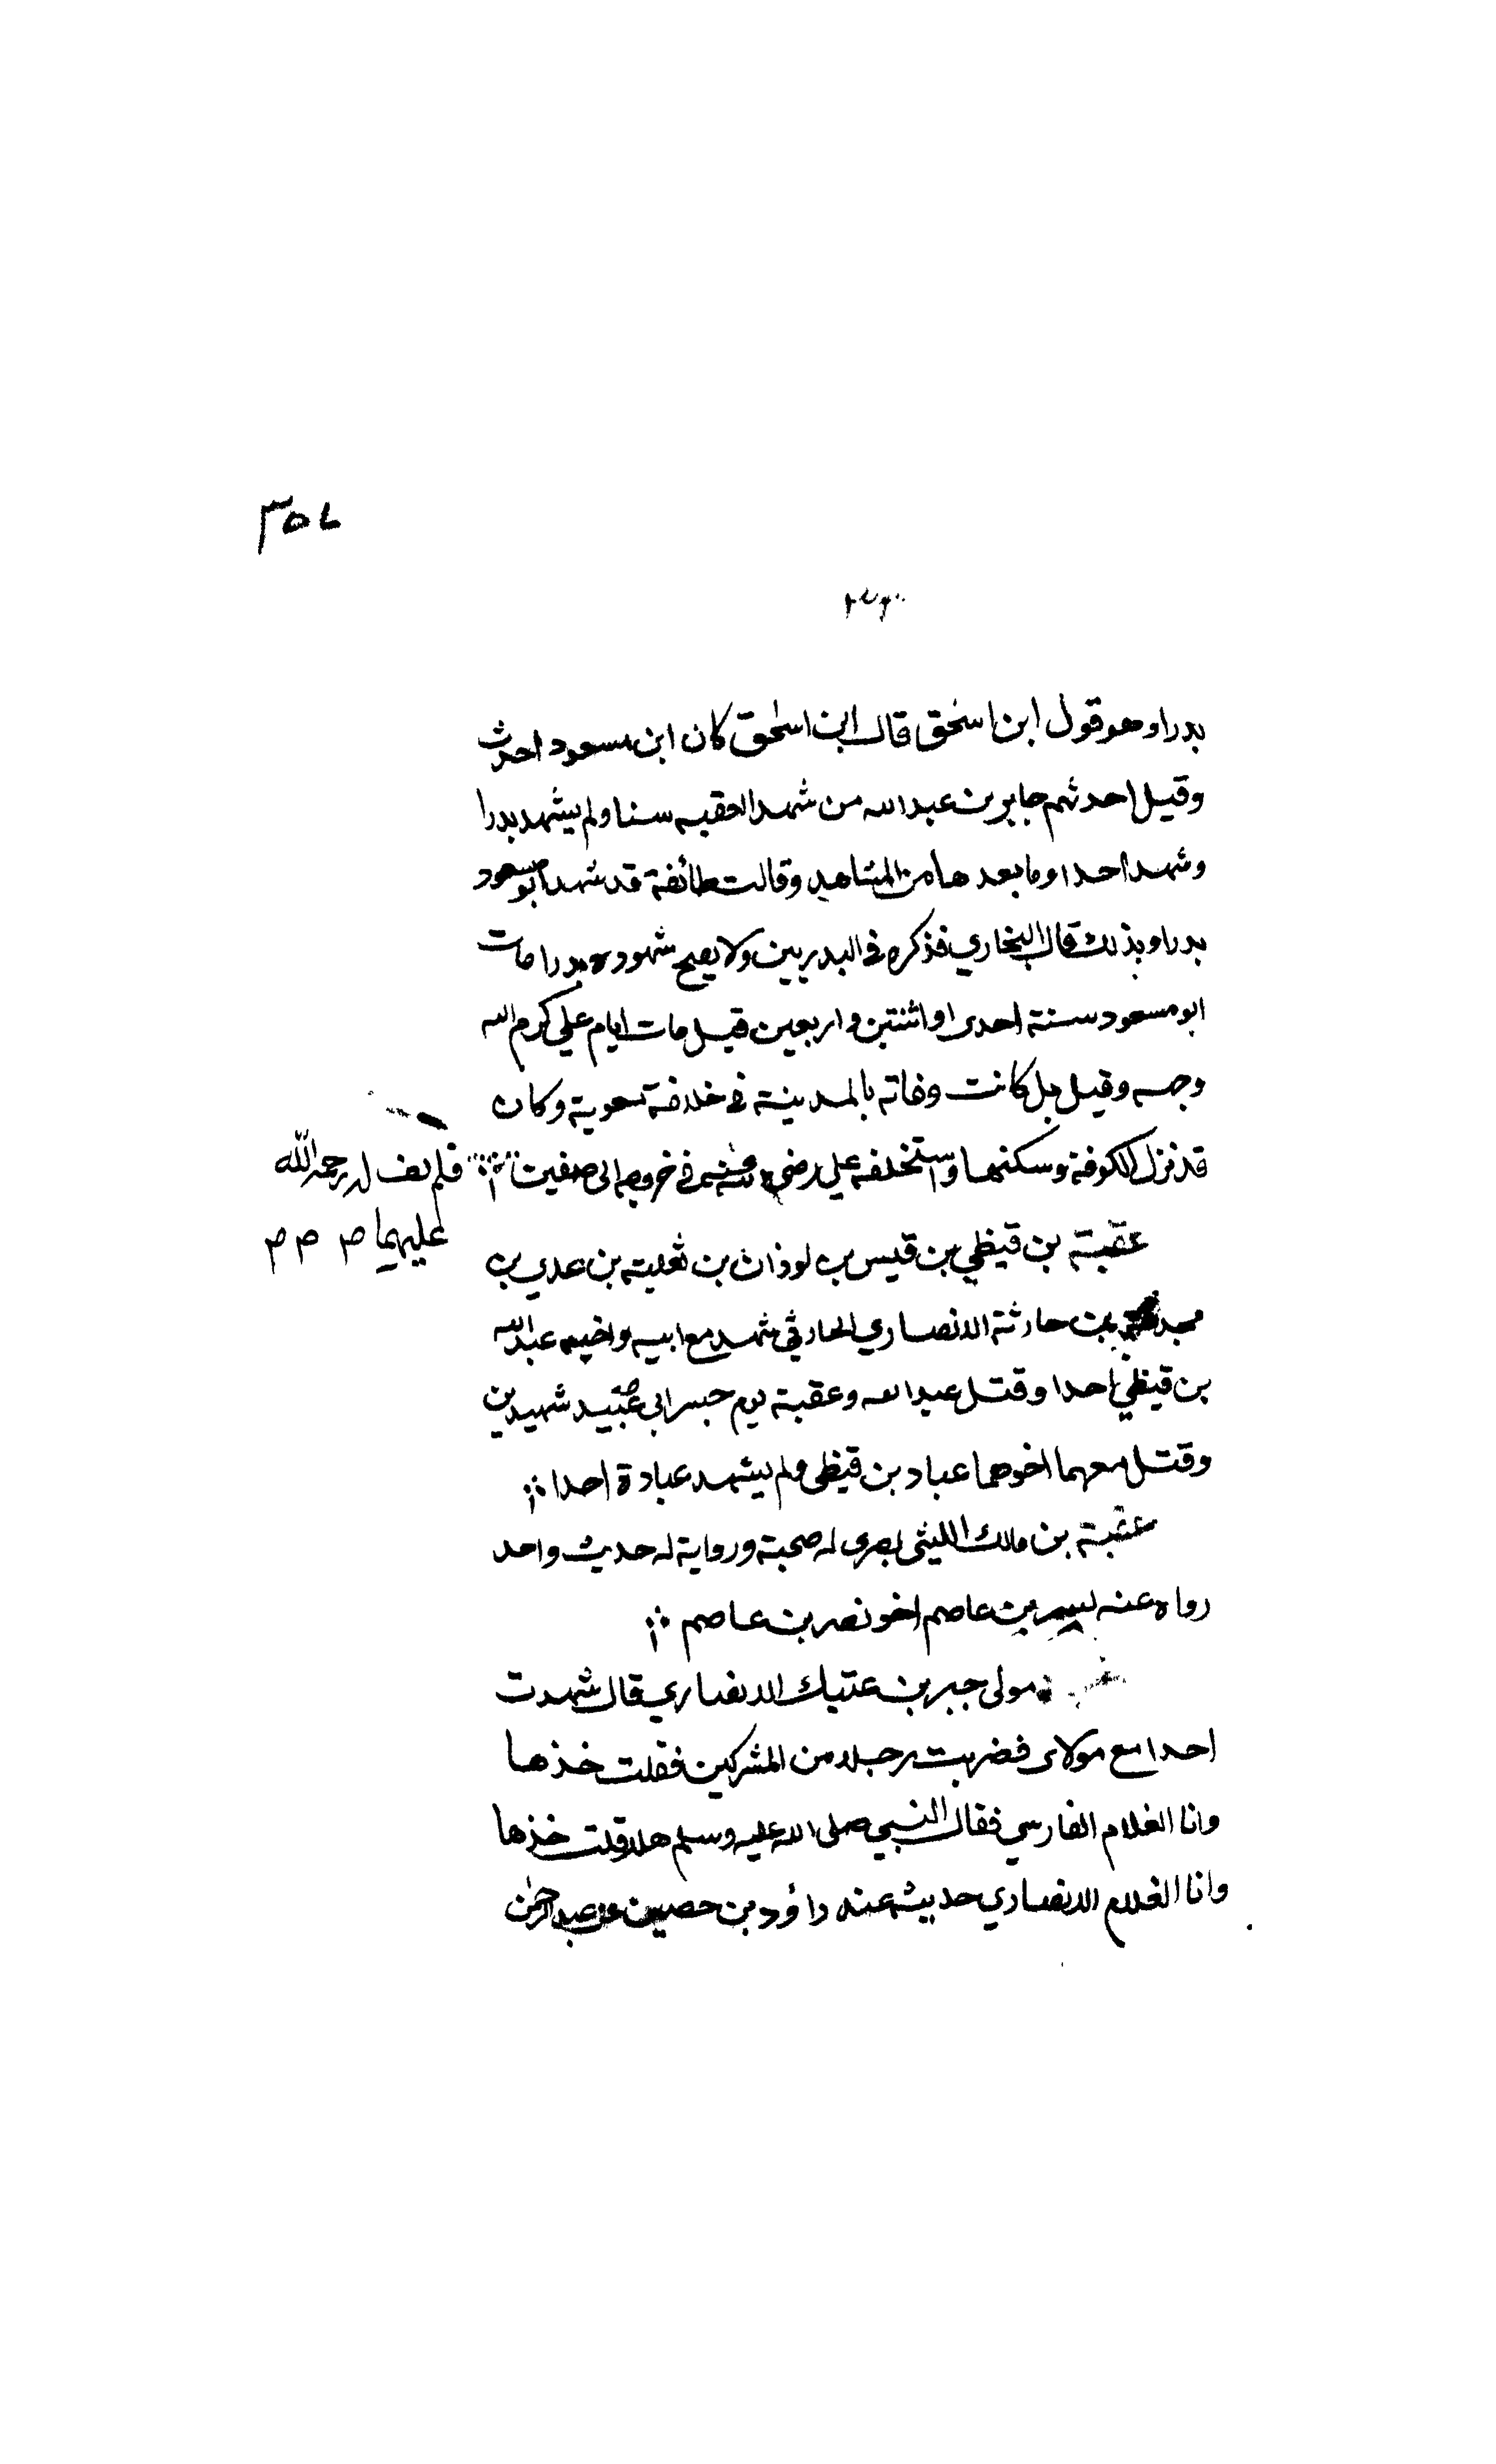 ٣٥٨
بدرا وهو قول ابن اسحق قال ابن اسحق كان ابن مسعود احدث
وقيل احدثهم جابر بن عبد الله من شهد العقبه سنا ولم يشهد بدرا
وشهد احدا وما بعدها من المشاهد وقالت طائفة قد شهد ابو مسعود
بدرا وبذلك قال البخاري فذكره في البدريين ولا يصح شهوده بدرا مات
ابو مسعود سنة احدى او اثنتين واربعين قيل مات ايام علي كرم الله
وجهه وقيل بل كانت وفاته بالمدينة في خلافة معوية وكان
قد نزل الكوفة وسكنها واستخلفه علي رضي في خروجه الى صفين فلم يف له رحمة الله
عليهما
عقبة بن قيظي بن قيس بن لوذان بن ثعلبة بن عدي بن
مجدعة بن حارثة الانصاري الحارثي شهد مع ابيه واخيه عبد الله
بن قيظي احدا وقتل عبد الله وعقبة يوم جسر ابي عبيد شهيدين
وقتل معهما اخوهما عباد بن قيظي ولم يشهد عبادة احدا
عقبة بن مالك الليثي بصري له صحبة ورواية له حديث واحد
رواه عنه بن عاصم اخو نصر بن عاصم
مولى جبر بن عتيك الانصاري قال شهدت
احدا مع مولاى فضربت رجلا من المشركين فقلت خذها
وانا الغلام الفارسي فقال النبي صلى الله عليه وسلم هلا قلت خذها
وانا الغلام الانصاري حديثه عنه داؤد بن حصين عن عبد الرحمن